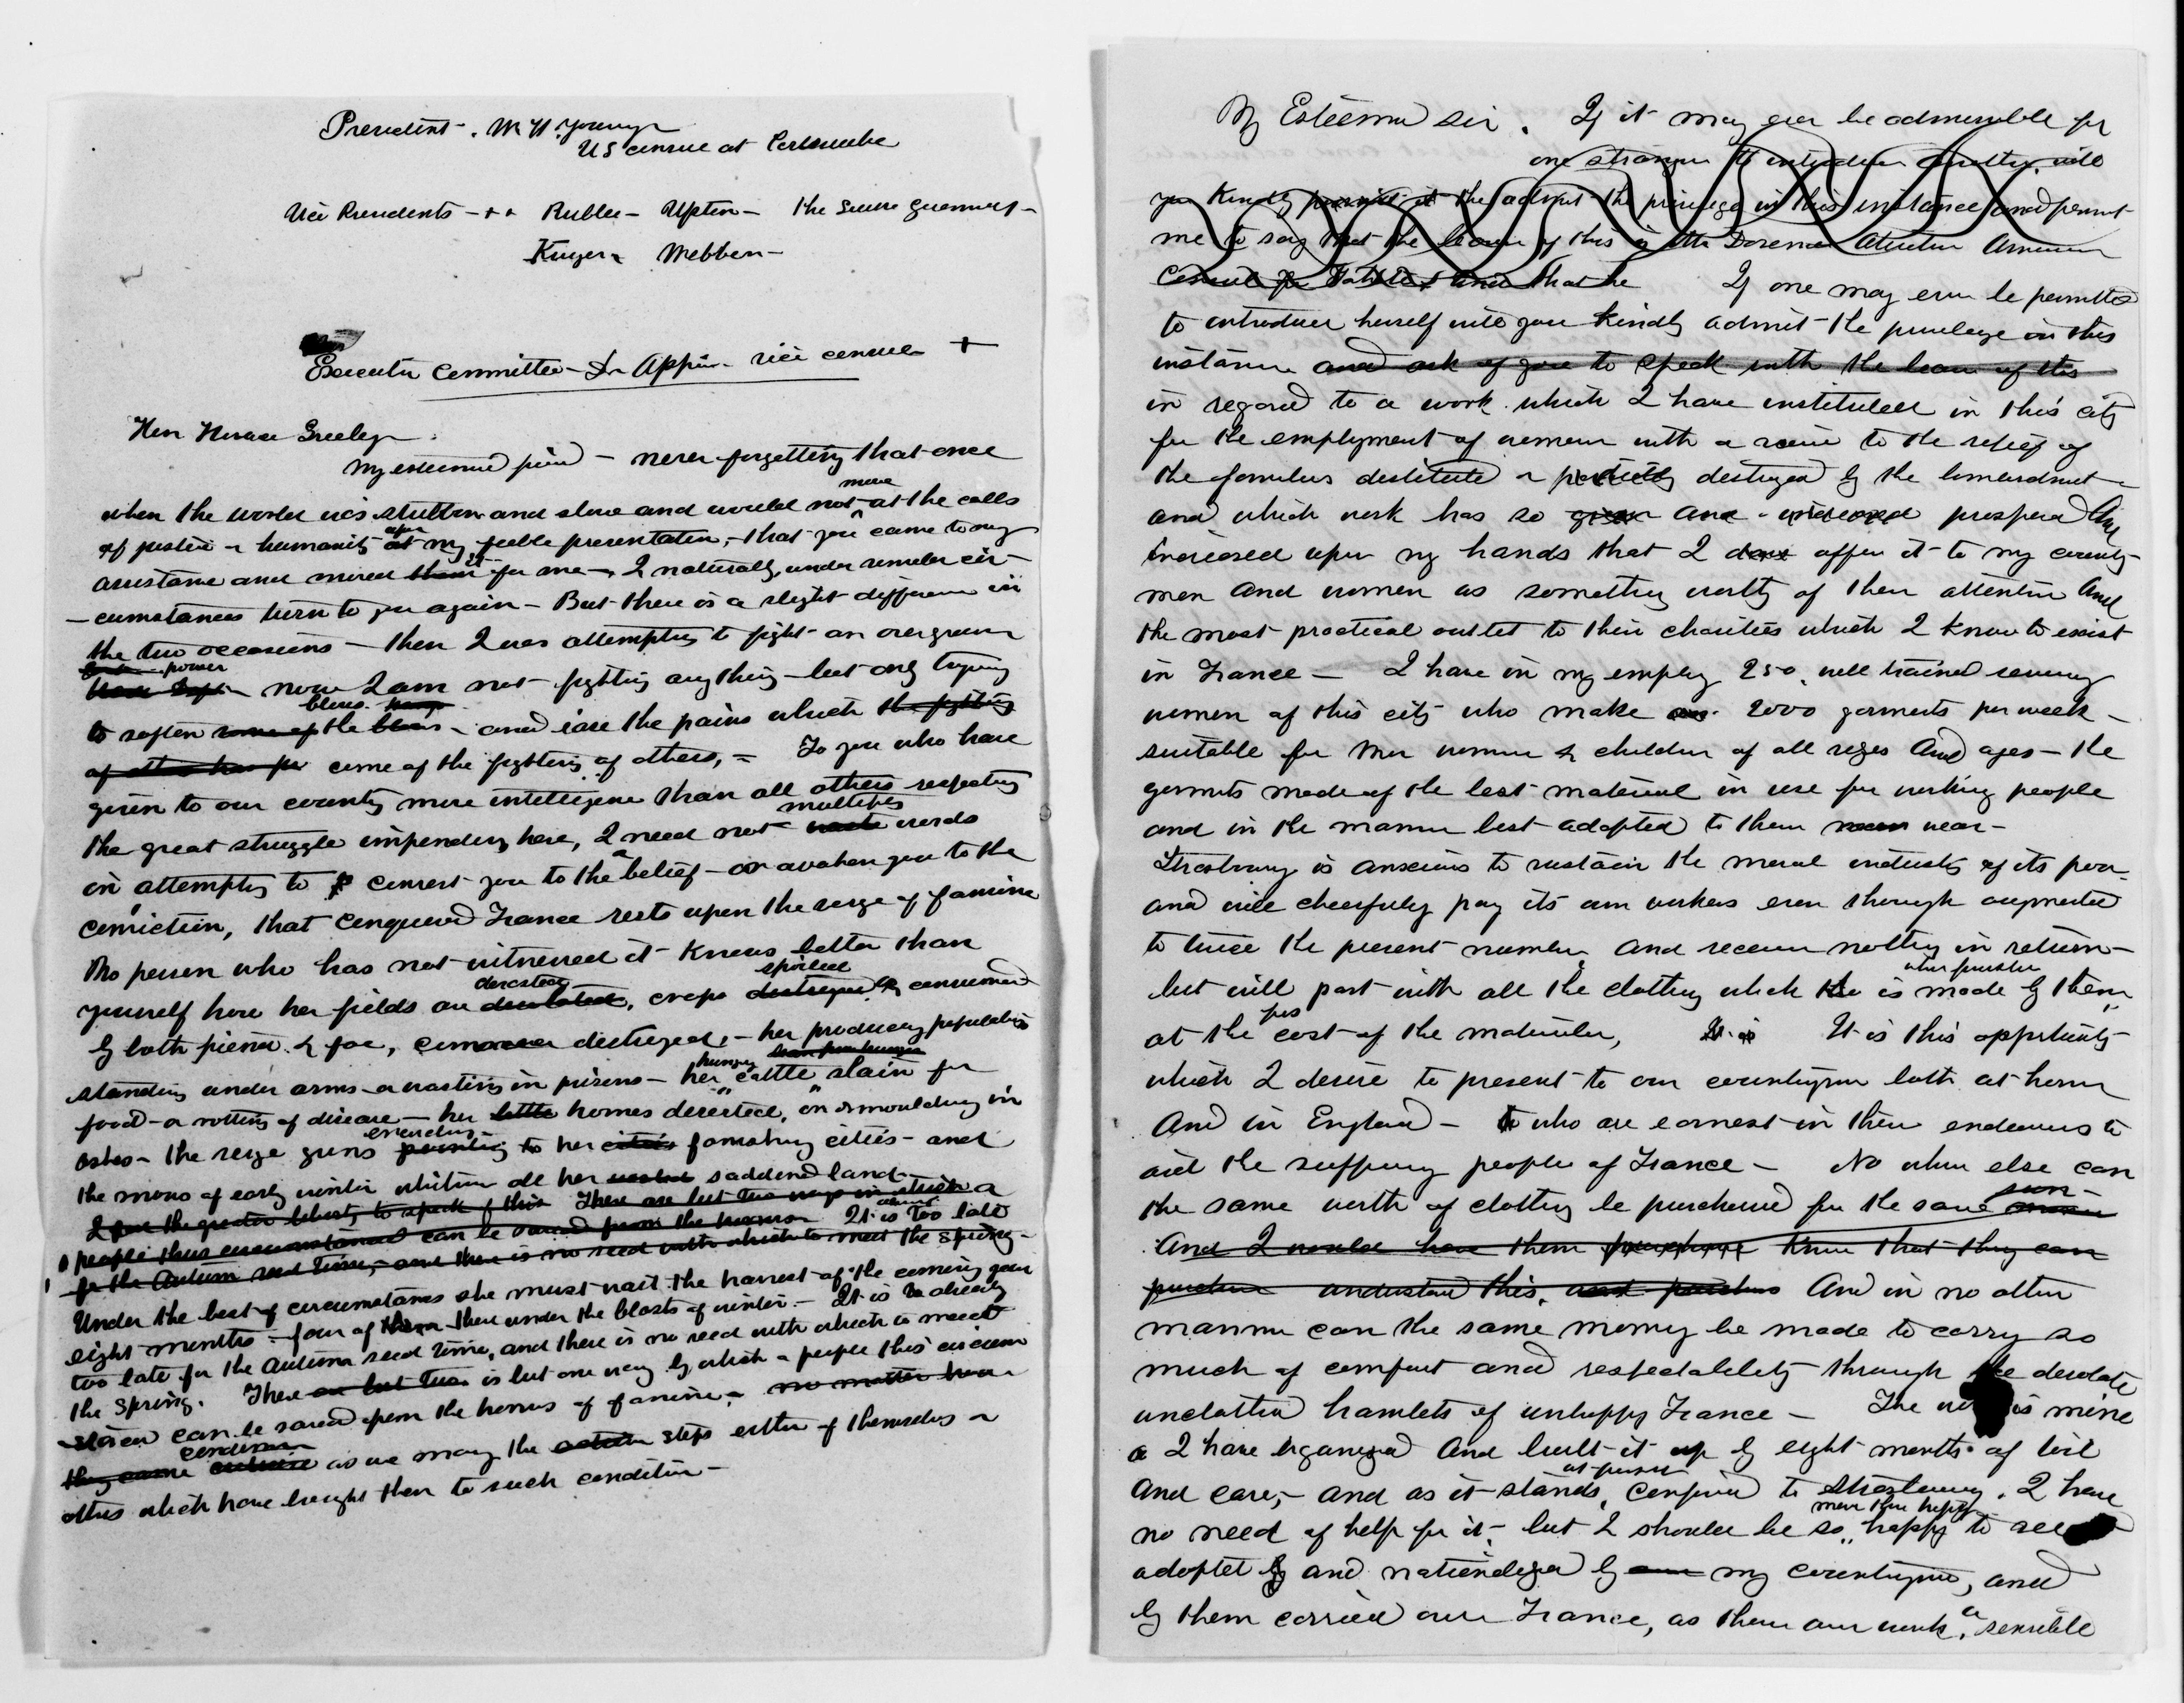 President - M H Young
US consul at Carlsruhe
Vice Presidents - ++ Rublee - Upton - the Swiss Germans -
Kuyer Mebben -
Executive Committee - Dr Appia - vice consul +
Hon Horace Greeley
My esteemed friend - never forgetting that once
when the world was stubborn and slow and would not move at the calls
of justice & humanity at upon my feeble presentation, - that you came to my
assistance and moved them it for me -, I naturally, under similar cir-
- cumstances turn to you again - But there is a slight difference in
the two occasions - then I was attempting to fight an overgrown
power now I am not fighting anything - but only trying
to soften some of the blows blows - and ease the pains which the fighting
of others has come of the fighting of others, - To you who have
given to our country more intelligence than all others respecting
the great struggle impending here, I need not waste multiply words
in attempting to convert you to the a belief - or awaken you to the
conviction, that conquered France rests upon the verge of famine
No person who has not witnessed it knows better than
yourself how her fields are desolated devastated, crops destroyed spoiled & consumed
by both friend & foe, commerce destroyed, - her producing population
standing under arms or wasting in prisons - her hungry cattle slain for
food - or rotting of disease - her little homes deserted, or smouldering in
ashes - the siege guns pointing to her cities famishing cities - and
the snows of early winter whiten all her wasted saddened land -
I feel the greater liberty to speak of this There are but two ways in which a
people thus circumstanced can be saved from the horrors It is almost too late
for the Autumn seed time, - and there is no seed with which to meet the spring -
Under the best of circumstances she must wait the harvest of the coming year
eight months - four of them - these under the blasts of winter - It is already
too late for the autumn seed time, and there is no seed with which to meet
the spring. There are but two is but one way by which a people this circum
stanced can be saved from the horrors of famine, no matter how
they came condemn as we may the steps either of themselves or
others which have brought them to such condition -
My Esteemed Sir. If it may ever be admissible for
one stranger to introduce another, will
you kindly permit it the admit the privilege in this instance and permit
me to say that the bearer of this is Mr Dorence Atwater American
Consul for Tahiti and that he If one may ever be permitted
to introduce herself will you kindly admit the privilege in this
instance and ask of you to speak with the bearer of this
in regard to a work which I have instituted in this city
for the employment of women with a view to the relief of
the families destitute or partially destroyed by the bombardment -
and which work has so grown and increased prospered and
increased upon my hands that I dare offer it to my country-
men and women as something worthy of their attention and
the most practical outlet to their charities which I know to exist
in France - I have in my employ 250 well trained sewing
women of this city who make 2000 garments per week -
suitable for men women & children of all sizes and ages - the
garments made of the best material in use for working people
and in the manner best adapted to them wear -
Strasbourg is anxious to sustain the moral industry of its poor
and will cheerfully pay its own workers even though augmented
to twice the present number, and receive nothing in return -
but will part with all the clothing which is made by them,
at the cost of the materials, It is It is this opportunity
which I desire to present to our countrymen both at home
And in England - who are earnest in their endeavors to
aid the suffering people of France - No where else can
the same worth of clothing be purchased for the same sum -
And I would have them know that they can
purchase understand this, And in no other
manner can the same money be made to carry so
much of comfort and respectability through the desolate
unclothed hamlets of unhappy France - The work is mine
I have organized and built it up by eight months of toil
And care, - and as it stands at present, confined to Strasbourg, I have
no need of help for it, - but I should be so more than happy happy to see
adopted by and nationalized by my countrymen, and
by them carried over France, as their own work, a sensible